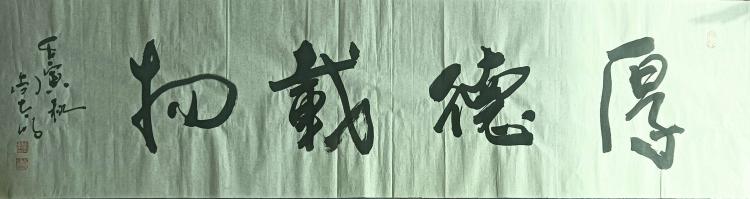 厚德載物
壬寅秋